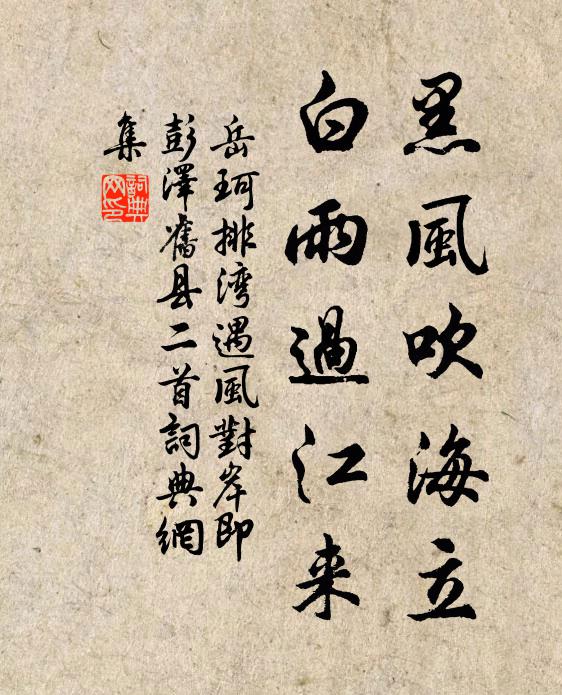 黑風吹海立
白雨過江来
岳珂排湾遇風對岸即
彭澤舊县二首詞典網
集
詞典
网印